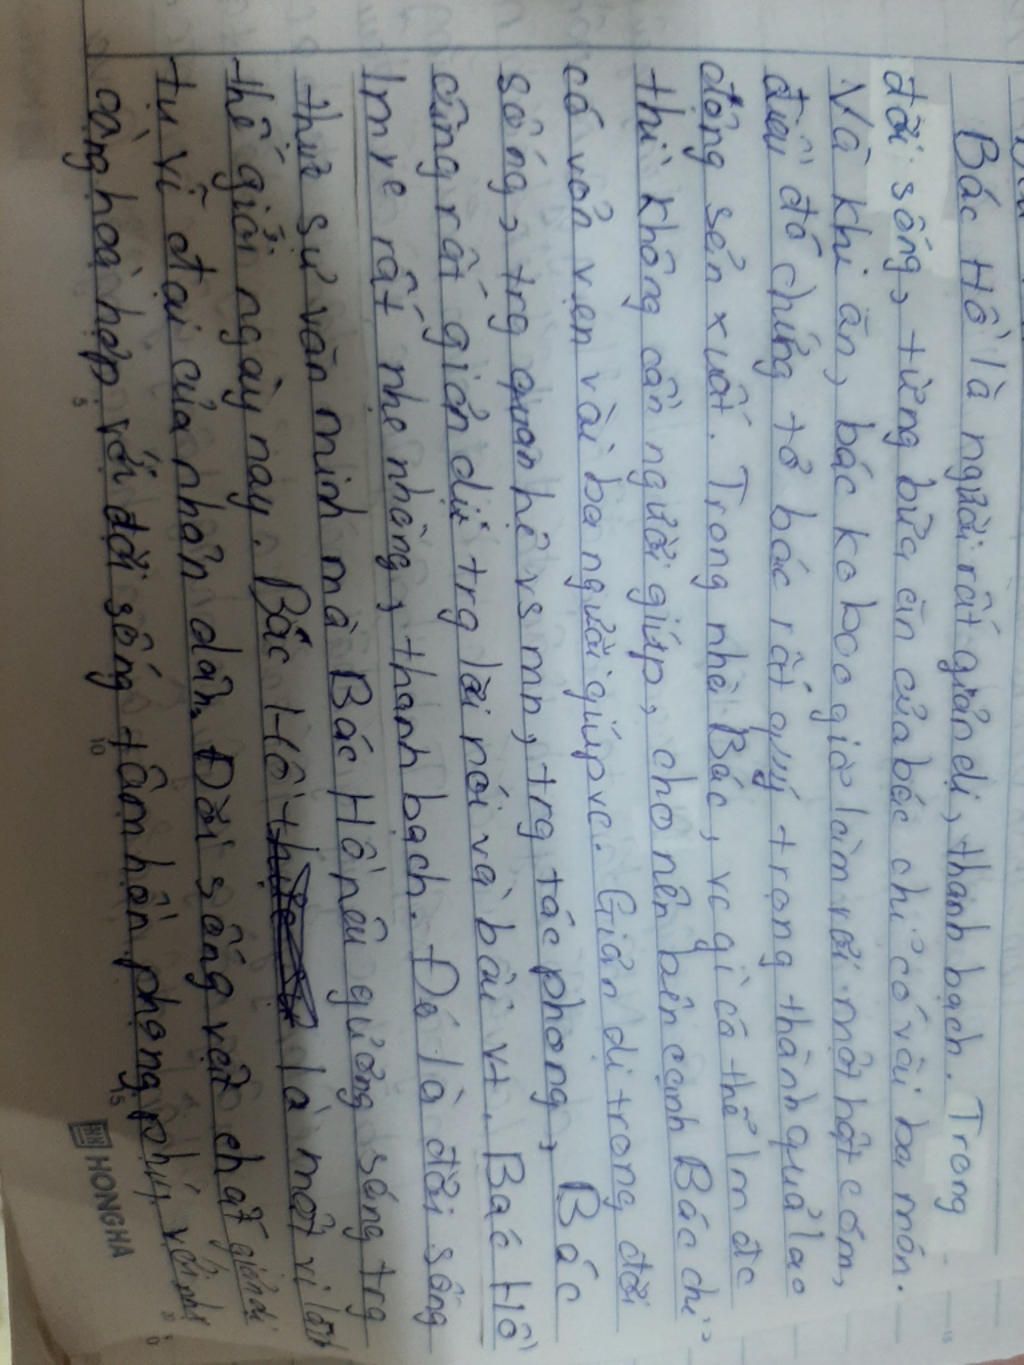 Bác Hồ là người rất giản dị, thanh bạch. Trong
đời sống, từng bữa ăn của bác chỉ có vài ba món.
Và khi ăn, bác ko bao giờ làm rơi một hột cơm,
điều đó chứng tỏ bác rất quý trọng thành quả lao
động sản xuất. Trong nhà Bác, vc gì có thể lm đc
thì không cần người giúp, cho nên bên cạnh Bác chỉ
có vỏn vẹn vài ba người giúp vc. Giản dị trong đời
sống, trg quan hệ vs mn, trg tác phong, Bác
cũng rất giản dị trg lời nói và bài vt. Bác Hồ
lm vc rất nhẹ nhàng, thanh bạch. Đó là đời sống
thực sự văn minh mà Bác Hồ nêu gương sáng trg
thế giới ngày nay. Bác Hồ là một vị lãnh
tụ vĩ đại của nhân dân. Đời sống vật chất giản dị
càng hoà hợp với đời sống tâm hồn phong phú, với
5
10
15
HONGHA